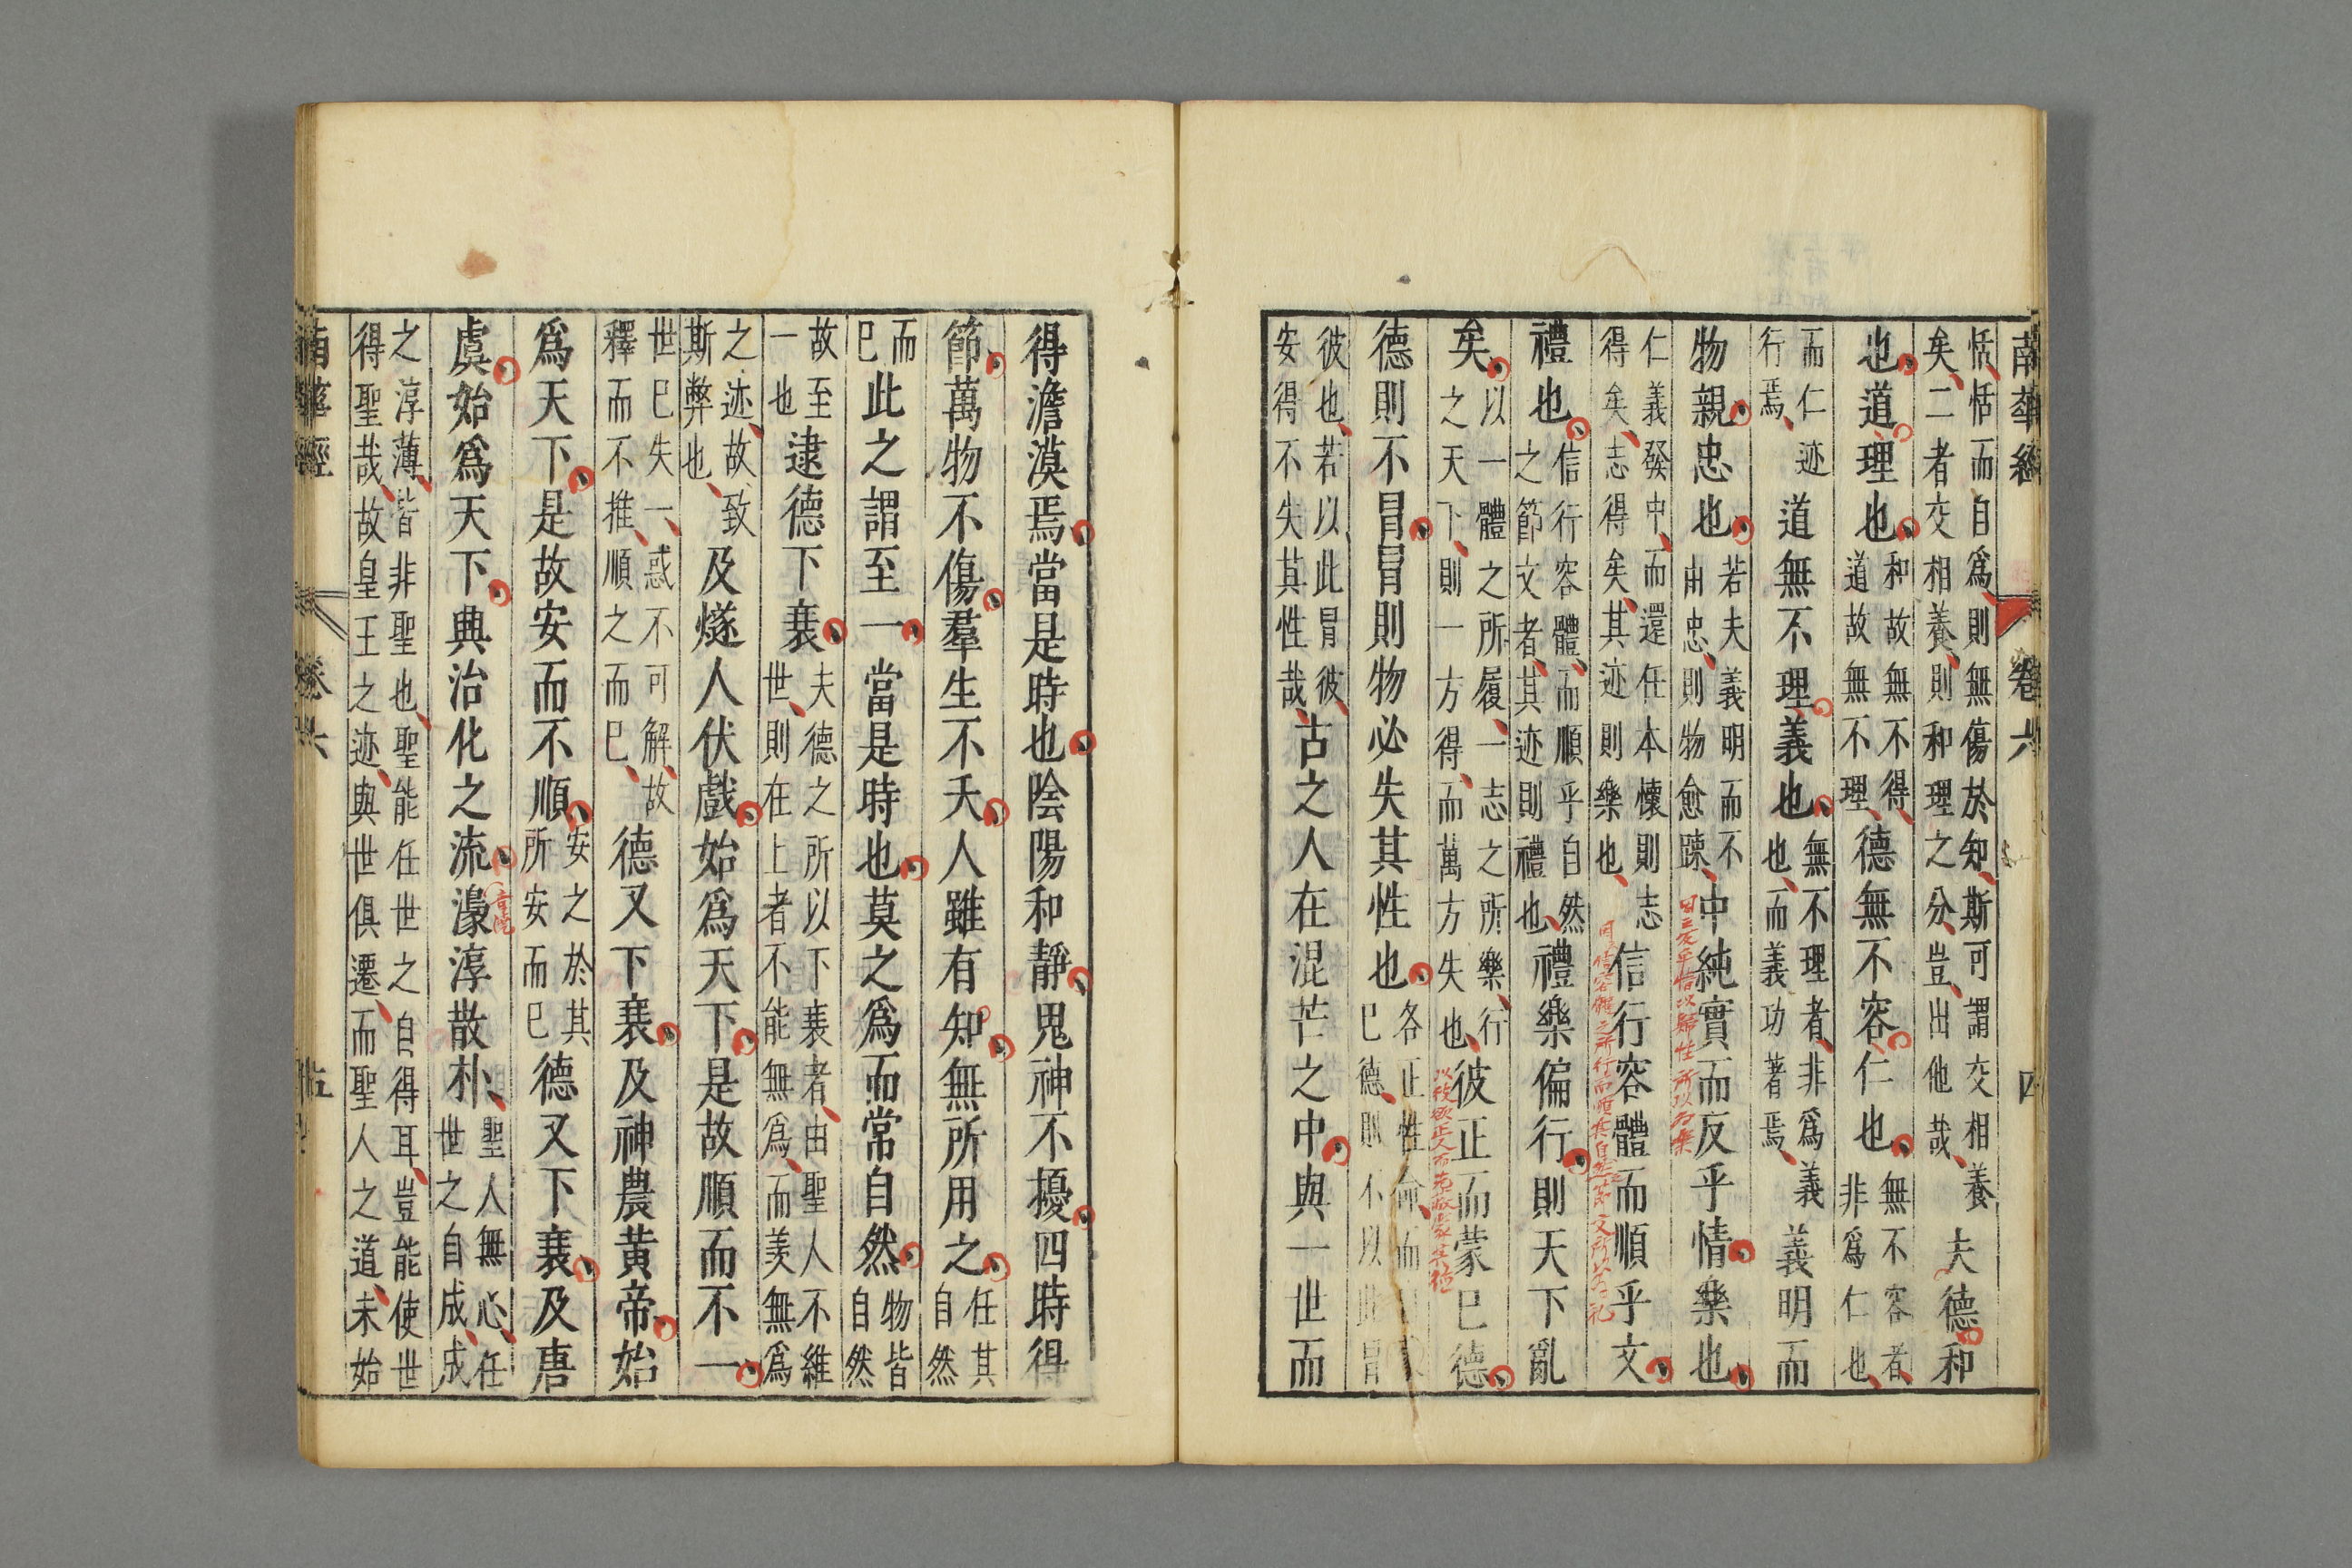 南華經 卷六 四
恬恬而自爲則無傷於知斯可謂交相養
矣二者交相養則和理之分豈出他哉
夫德和
也道理也
和故無不得
道故無不理
德無不容仁也
無不容者
非爲仁也
而仁迹
行焉
道無不理義也
無不理者非爲義
也而義功著焉
義明而
物親忠也
若夫義明而不
由忠則物愈踈
中純實而反乎情樂也
仁義發中而還任本懷則志
得矣志得矣其迹則樂也
信行容體而順乎文
禮也
信行容體而順乎自然
之節文者其迹則禮也
禮樂偏行則天下亂
矣
以一體之所履一志之所樂行
之天下則一方得而萬方失也
彼正而蒙已德
德則不冒冒則物必失其性也
各正性命而
已德則不以此冒
彼也若以此冒彼
安得不失其性哉
古之人在混芒之中與一世而
得澹漠焉當是時也陰陽和靜鬼神不擾四時得
節萬物不傷羣生不夭人雖有知無所用之
任其
自然
而
已
此之謂至一當是時也莫之爲而常自然
物皆
自然
故至
一也
逮德下衰
夫德之所以下衰者由聖人不繼
世則在上者不能無爲而羡無爲
之迹故致
斯弊也
及燧人伏戲始爲天下是故順而不一
世已失一惑不可解故
釋而不推順之而已
德又下衰及神農黄帝始
爲天下是故安而不順
安之於其
所安而已
德又下衰及唐
虞始爲天下典治化之流濠淳散朴
聖人無心任
世之自成成
之淳薄皆非聖也聖能任世之自得耳豈能使世
得聖哉故皇王之迹與世俱遷而聖人之道未始
南華經 卷六 五